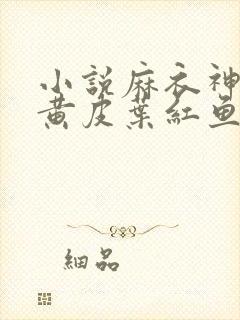 小說麻衣神
黃皮葉紅魚
細品